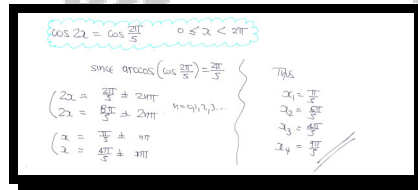 cos 2x = cos 2π/5    0 ≤ x < 2π
since arccos(cos 2π/5) = 2π/5
( 2x = 2π/5 ± 2nπ
( 2x = 8π/5 ± 2nπ    n=0,1,2,3...
( x = π/5 ± nπ
( x = 4π/5 ± nπ
Thus
x₁ = π/5
x₂ = 6π/5
x₃ = 4π/5
x₄ = 9π/5